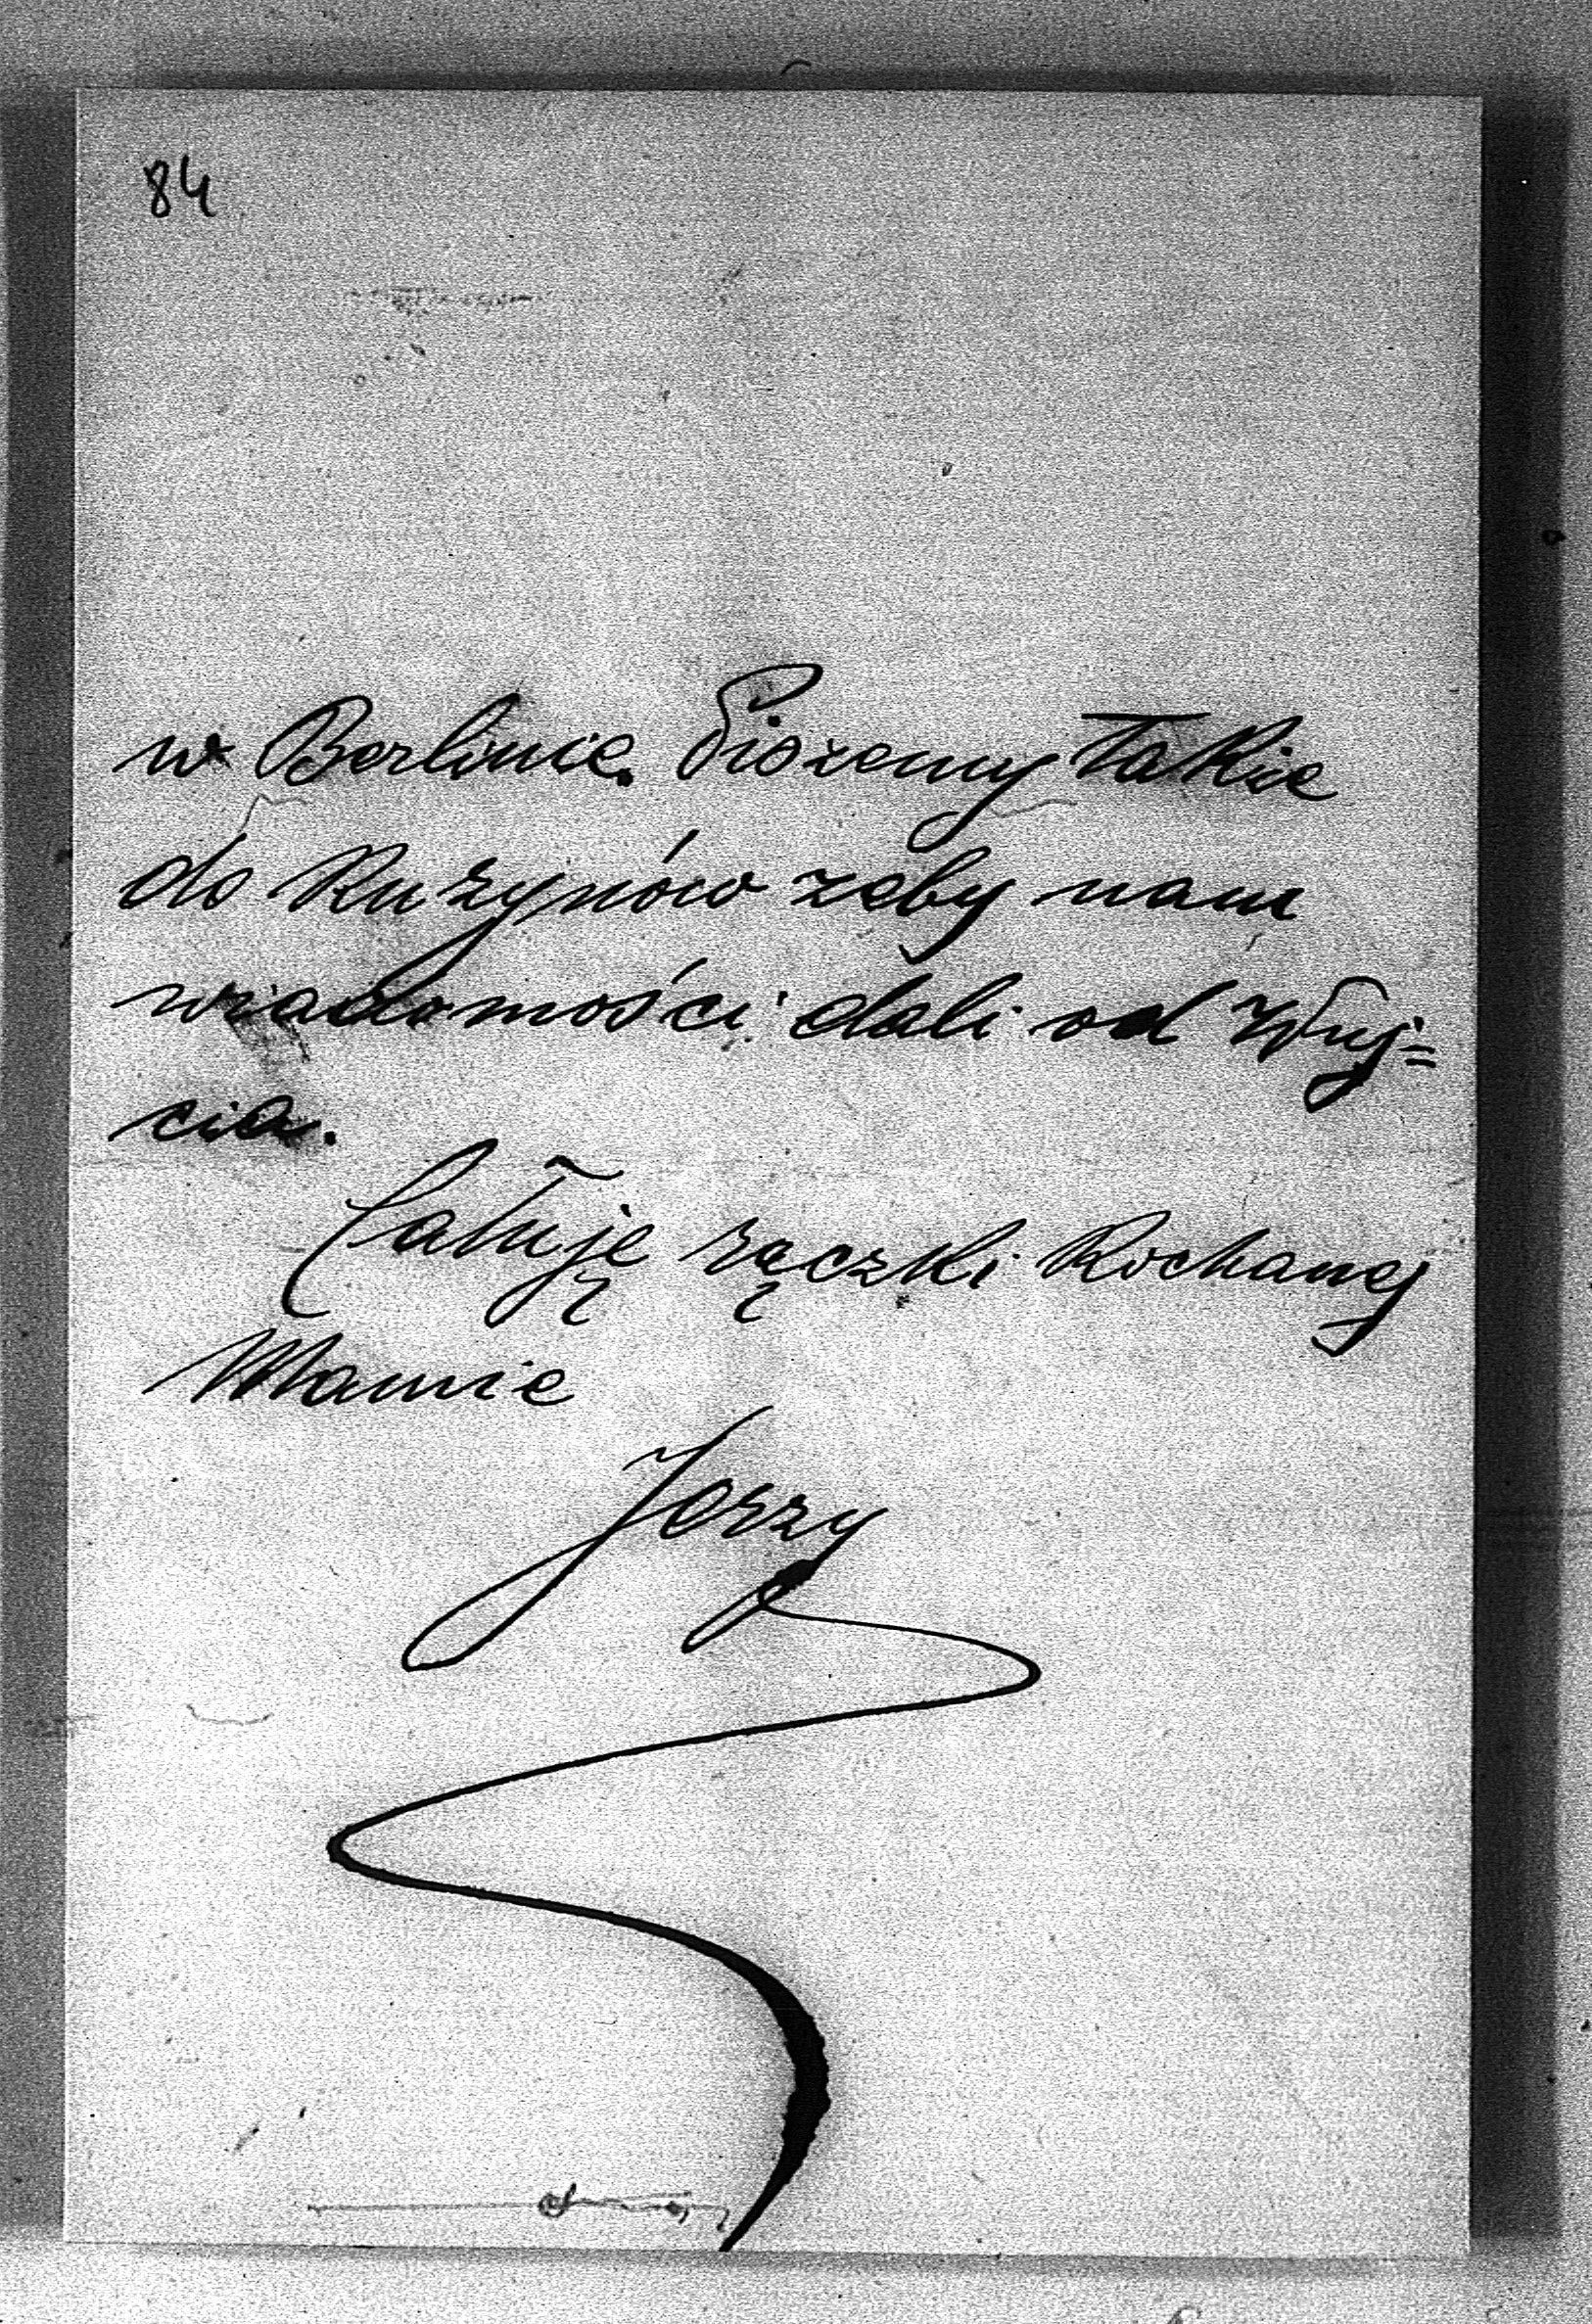 84
w Berlinie. Piszemy takie
do Kuzynów zeby nam
wiadomości dali od Wuj=
cia.
Całuję rączki Kochanej
Mamie
Jerzy